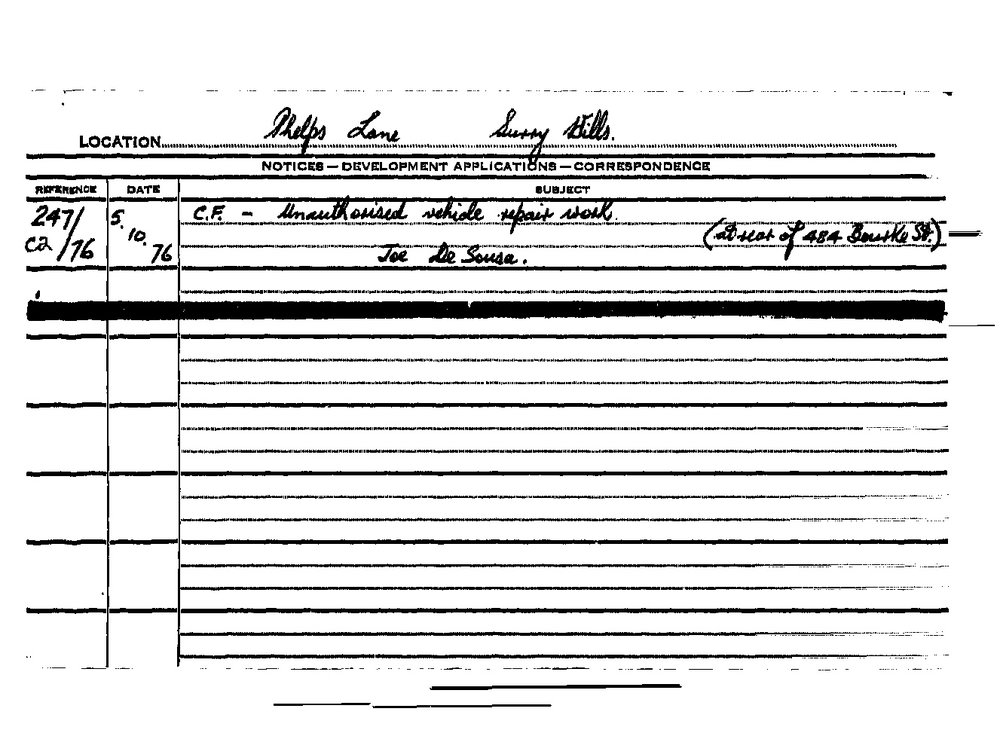 LOCATION Phelps Lane Surry Hills.
NOTICES — DEVELOPMENT APPLICATIONS — CORRESPONDENCE
REFERENCE DATE SUBJECT
247/ 5. C.F. - Unauthorised vehicle repair work.
C2/76 10. (at rear of 484 Bourke St.)
76 Joe De Sousa.